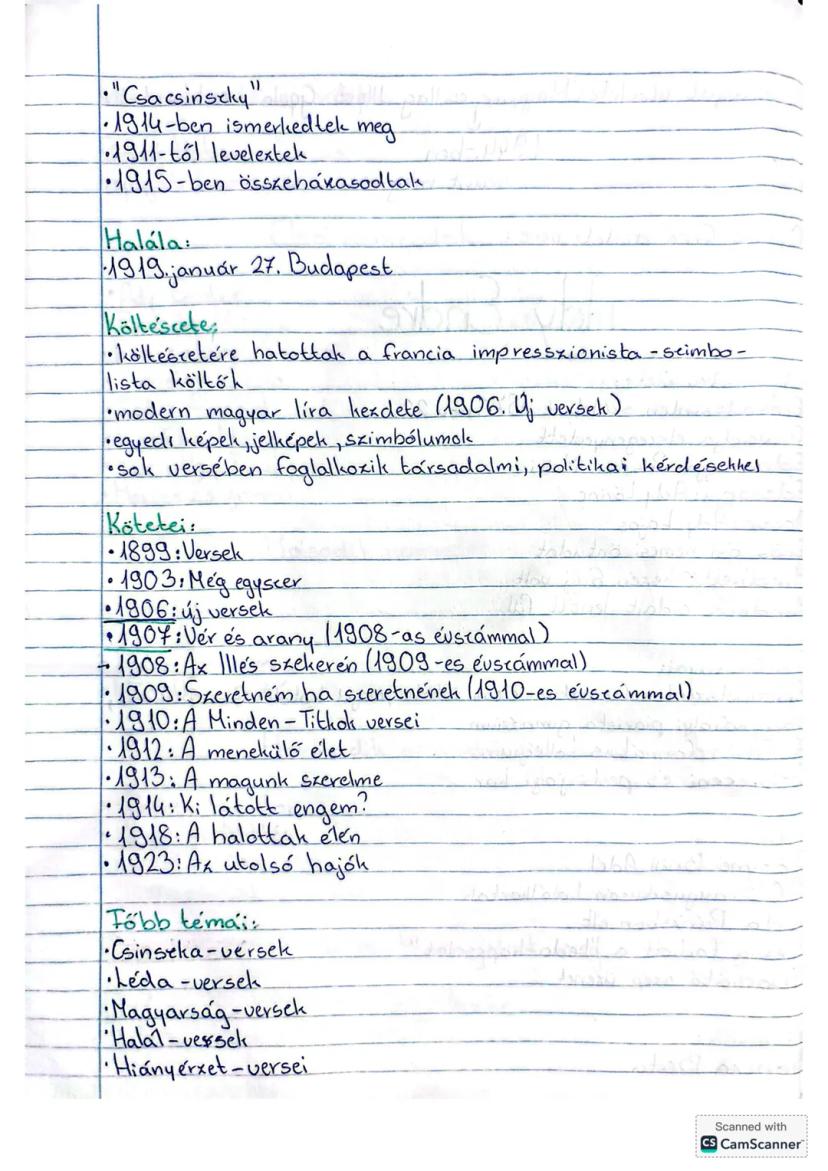 • "Csacsinszky"
• 1914-ben ismerkedtek meg
• 1911-től leveleztek
• 1915-ben összeházasodtak
Halála:
• 1919. január 27. Budapest
Költészete:
• költészetére hatottak a francia impresszionista - szimbo-
lista költők
• modern magyar líra kezdete (1906. Új versek)
• egyedi képek, jelképek, szimbólumok
• sok versében foglalkozik társadalmi, politikai kérdésekkel
Kötetei:
• 1899: Versek
• 1903: Még egyszer
• 1906: új versek
• 1907: Vér és arany (1908-as évszámmal)
• 1908: Az Illés szekerén (1909-es évszámmal)
• 1909: Szeretném ha szeretnének (1910-es évszámmal)
• 1910: A Minden-Titkok versei
• 1912: A menekülő élet
• 1913: A magunk szerelme
• 1914: Ki látott engem?
• 1918: A halottak élén
• 1923: Az utolsó hajók
Főbb témái:
• Csinszka-versek
• Léda-versek
• Magyarság-versek
• Halál-versek
• Hiányérzet-versei
Scanned with
CS CamScanner